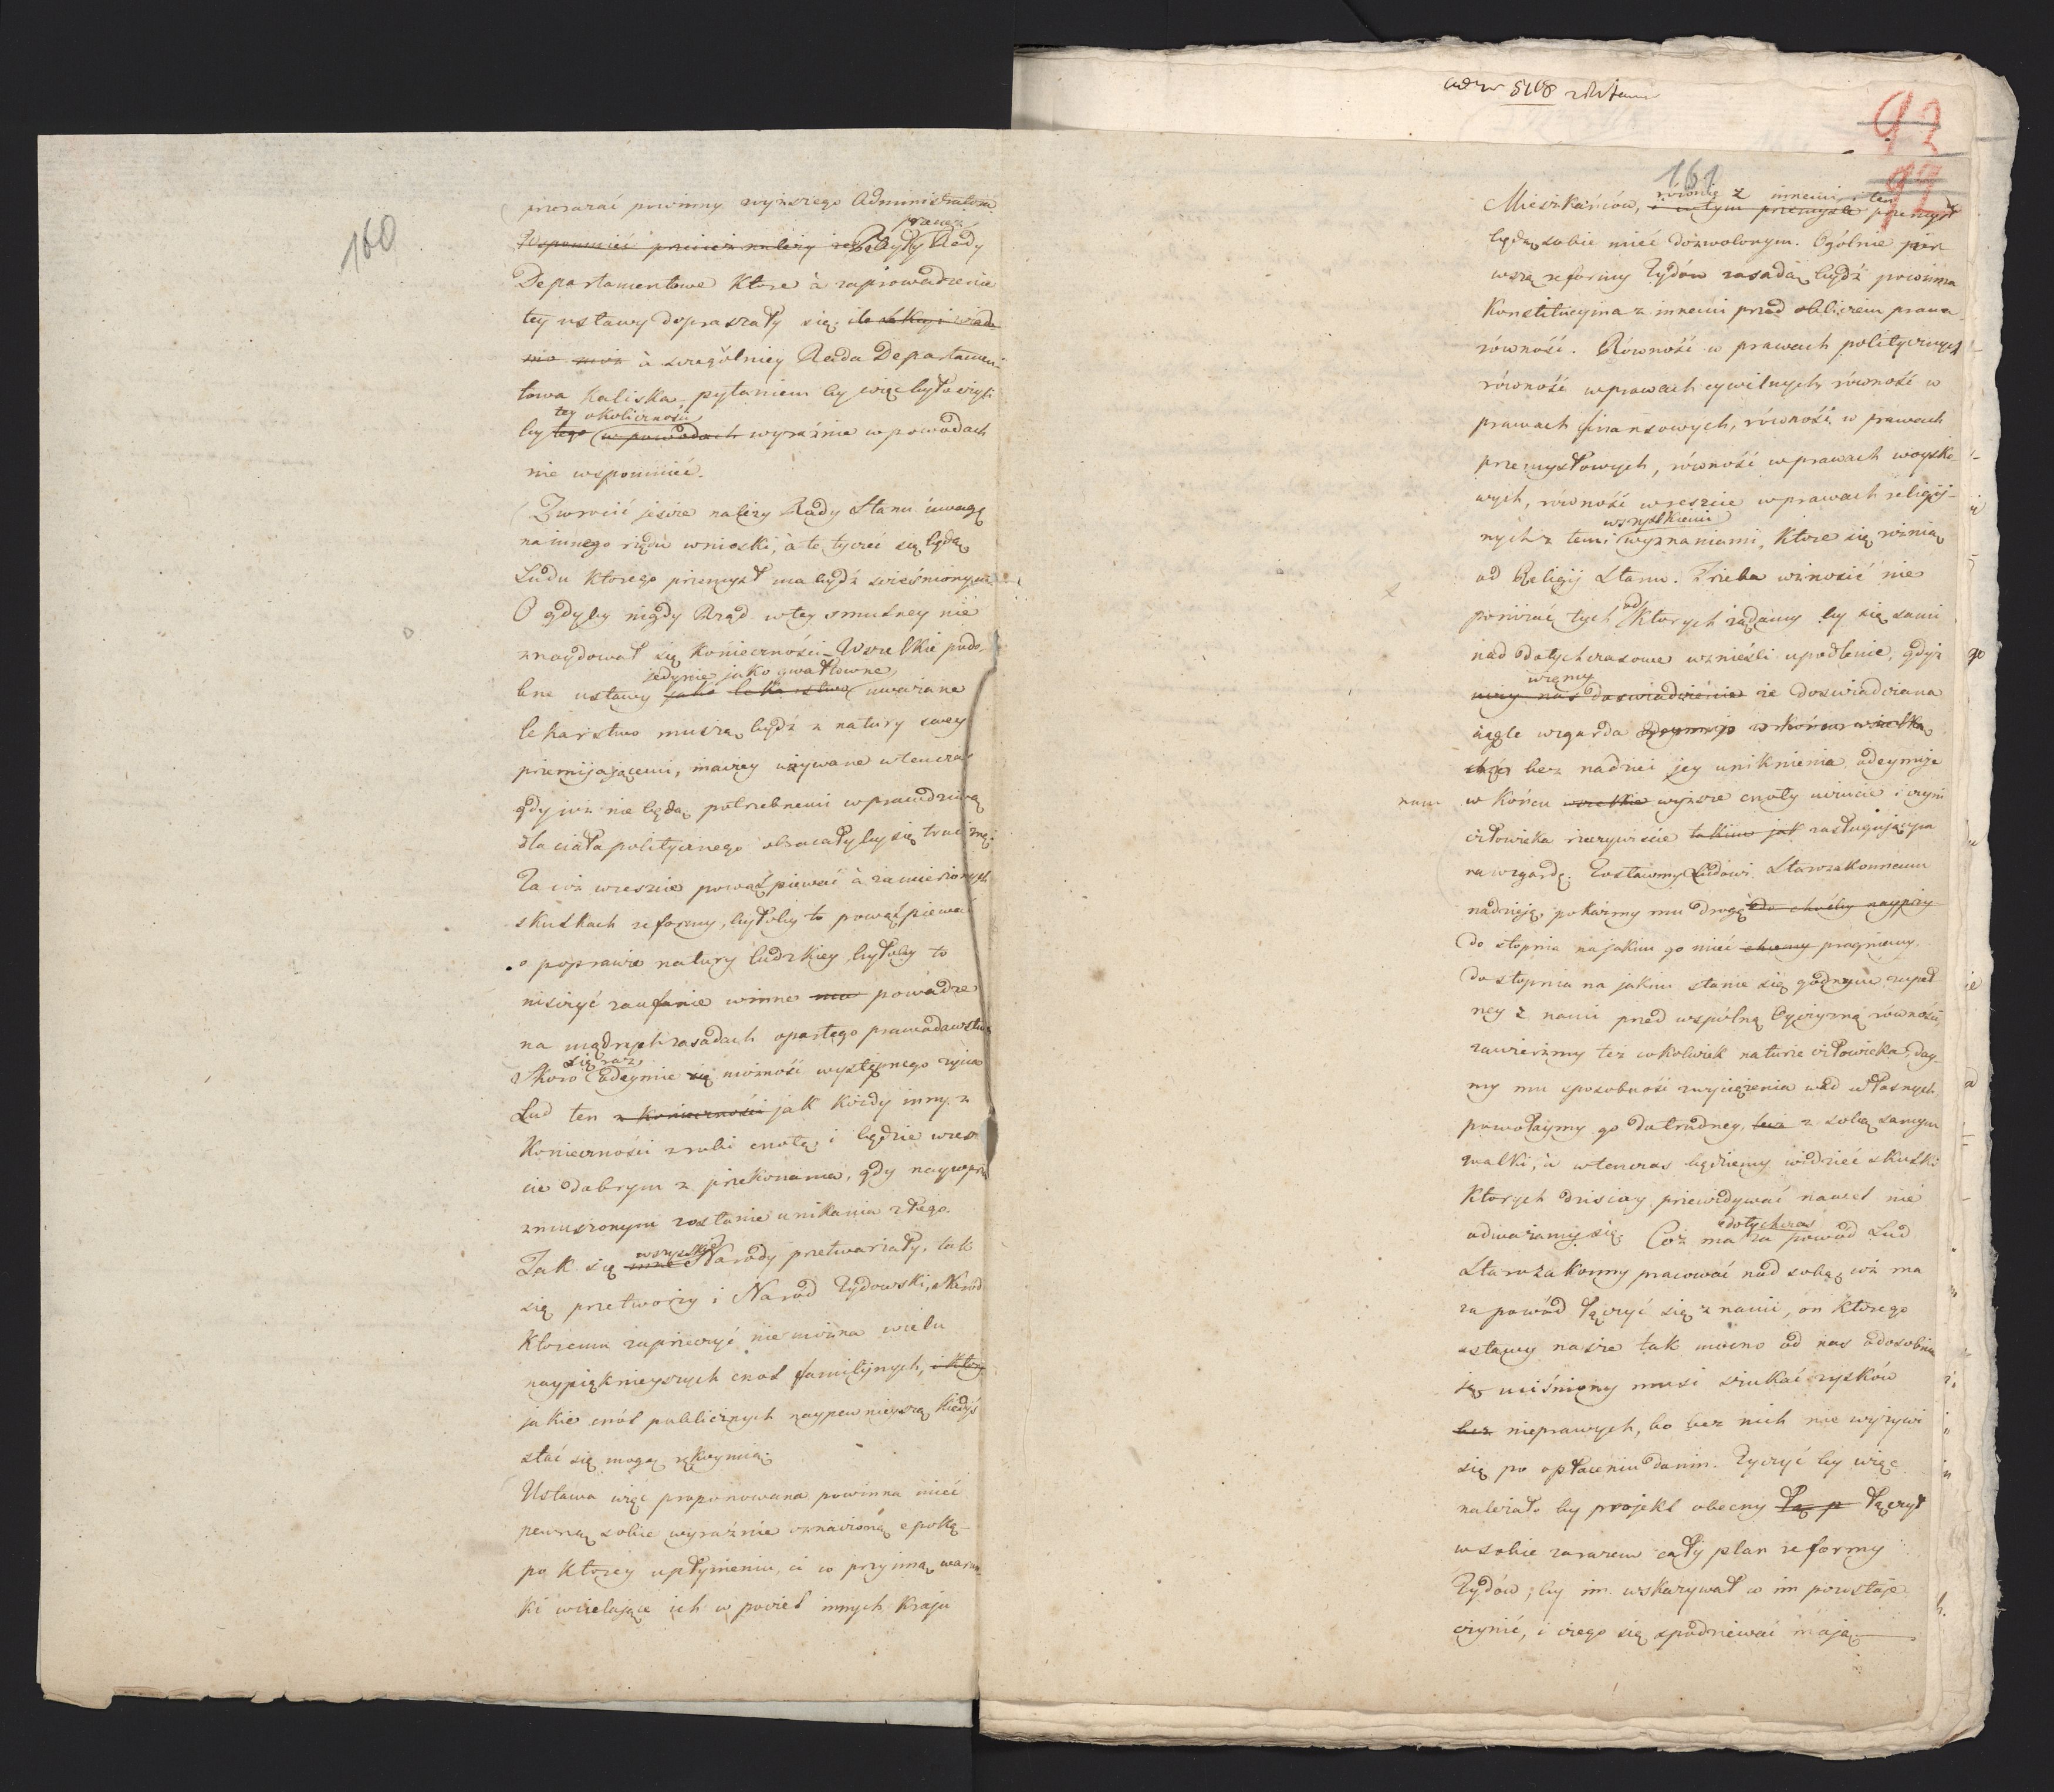 160
przerazać powinny wyższego Administratora.
Wspomnieć przecież należy że Były przecież Rady
Departamentowe które o zaprowadzenie
tey ustawy dopraszały się;
à szczególniey Rada Departamen-
towa Kaliska, pytaniem by więc było czyli
by tego tey okoliczności w powodach wyraźnie w powodach
nie wspomnieć.
Zwrócić jeszcze należy Rady Stanu uwagę
na innego rzędu wnioski, à te tyczeć się będą
Ludu którego przemysł ma bydź ścieśnionym
O gdyby nigdy Rząd w tey smutney nie
znaydował się konieczności – Wszelkie podo-
bne ustawy jako lekarstwo jedynie jako gwałtowne uważane
lekarstwo muszą bydź z natury swey
przemijającemi, inaczey używane wtenczas
gdy już nie będą potrzebnemi w prawdziwą
dla ciała politycznego obracałyby się truciznę.
Zaś wreszcie powątpiewać à zamierzonych
skutkach reformy, byłoby to powątpiewać
o poprawie natury ludzkiey, byłoby to
niszczyć zaufanie winne powadze
na mądrych zasadach opartego prawodawstwa
Skoro się raz odeymie się możność występnego życia
Lud ten z konieczności jak każdy inny z
konieczności zrobi cnotę, i będzie wresz-
cie dobrym z przekonania, gdy naywprzód
zmuszonym zostanie unikania złego.
Jak się inne wszystkie Narody przetwarzały, tak
się przetworzy i Naród Żydowski, Naród
któremu zaprzeczyć nie można wielu
naypięknieyszych cnot familijnych, i który
jakie cnót publicznych naypewnieyszą kiedyś
stać się mogą rękoymią.
Ustawa więc proponowana powinna mieć
pewną sobie wyraźnie oznaczoną epokę –
po którey upłynieniu, ci co przyimą warun-
ki wcielające ich w poczet innych Kraju
5108
92
161
92
Mieszkańców, i w tym przemyśle równie z innemi i ten przemysł
będą sobie mieć dozwolonym. Ogólnie pier
wszą reformy Żydów zasadą bydź powinna
Konstitucyina z innemi przed obliczem prawa
równość. Równość w prawach politycznych
równość w prawach cywilnych, równość w
prawach finansowych, równość w prawach
przemysłowych, równość w prawach woysko-
wych, równość wreszcie w prawach religij-
nych z temi wszystkiemi wyznaniami, które się różnią
od Religij Stanu. Trzeba wznosić nie
poniżać tych od których żądamy by się sami
nad dotychczasowe wznieśli upodlenie, gdyż
uczy nas doświadczenie wiemy że doświadczana
ciągle wzgarda odeymuje w końcu wszelką
chęć bez nadziei jey uniknienia odeymuje
nam w końcu wszelkie wyższe cnoty uczucie i czyni
człowieka rzeczywiście takim jak zasługującym
na wzgardę. Zostawmy Ludowi Starozakonnemu
nadzieję, pokażmy mu drogę do choćby nayprzy
do stopnia na jakim go mieć chcemy pragniemy.
do stopnia na jakim stanie się godnym zupeł
ney z nami przed wspólną Oyczyzną równości,
zawierzmy też cokolwiek naturze człowieka, day-
my mu sposobność zwyciężenia wad własnych
powołaymy go do trudney, lecz z sobą samym
walki, à wtenczas będziemy widzieć skutki
których dzisiay przewidywać nawet nie
odważamy się. Cóż ma dotychczas za powód Lud
Starozakonny pracować nad sobą, cóż ma
za powód łączyć się z nami, on którego
ustawy nasze tak mocno od nas odosobnia
ją, uciśniony musi szukać zysków
bez nieprawych, bo bez nich nie wyżywi
się po opłaceniu danin. Życzyć by więc
należało by projekt obecny łą p łączył
w sobie zarazem cały plan reformy
Żydów; by im wskazywał co im pozostaje
czynić, i czego się spodziewać mają.